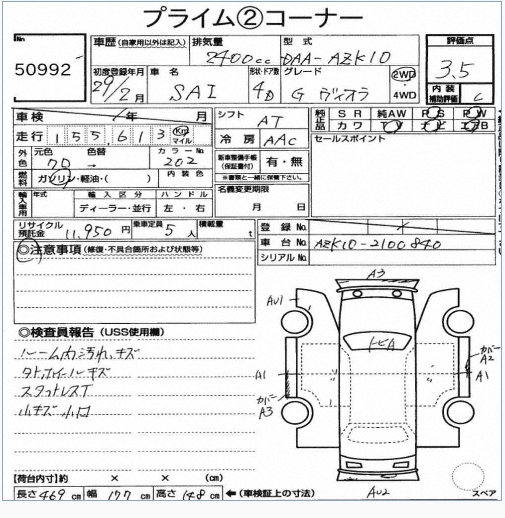 プライム②コーナー
No.
50992
車歴 (自家用以外は記入)
排気量
2400cc
型式
DAA-AZK10
評価点
3.5
内装補助評価
C
初度登録年月
29/2月
車名
SAI
形状・ドア数
4D
グレード
G ヴィオラ
2WD
4WD
車検 年 月
走行 155,613 Km マイル
シフト
AT
冷房
AAC
純正品
SR 純AW PS PW
カワ TV ナビ エアB
セールスポイント
外色
元色
色替
カラーNo.
202
燃料
ガソリン・軽油・( )
内装色
新車整備手帳
(保証書付)
有・無
※書類と一緒に保管下さい。
輸入車用
年式
輸入区分
ディーラー・並行
ハンドル
左・右
名義変更期限
月 日
リサイクル預託金
11,950円
乗車定員
5人
積載量
t
登録No.
車台No. AZK10-2100840
シリアルNo.
◎注意事項 (修復・不具合箇所および状態等)
◎検査員報告 (USS使用欄)
ルーム内汚れ、キズ
タトホイールキズ
スタットレスT
小キズ 小凹
A3
AU1
トビA
カバーA2
A1
A1
カバーA3
AU2
スペア
【荷台内寸】約 × × (cm)
長さ 469 cm 幅 177 cm 高さ 148 cm ←(車検証上の寸法)